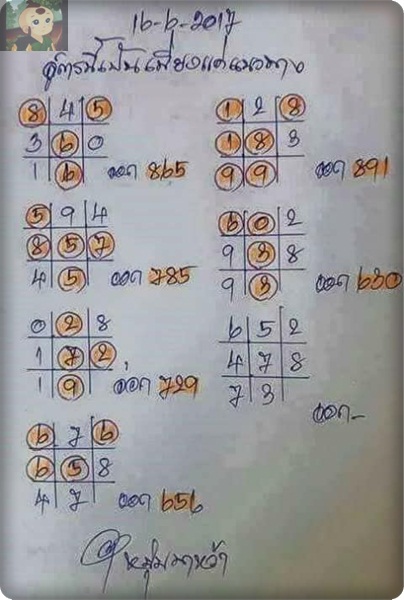 16-6-2017
สูตรนี้เป็นเพียงแค่แนวทาง
8 4 5
3 6 0
1 6 ออก 865
1 2 8
1 8 3
9 9 ออก 891
5 9 4
8 5 7
4 5 ออก 785
6 0 2
9 3 8
9 3 ออก 630
0 2 8
1 7 2
1 9 ออก 729
6 5 2
4 7 8
7 3
ออก-
6 7 6
6 5 8
4 7 ออก 656